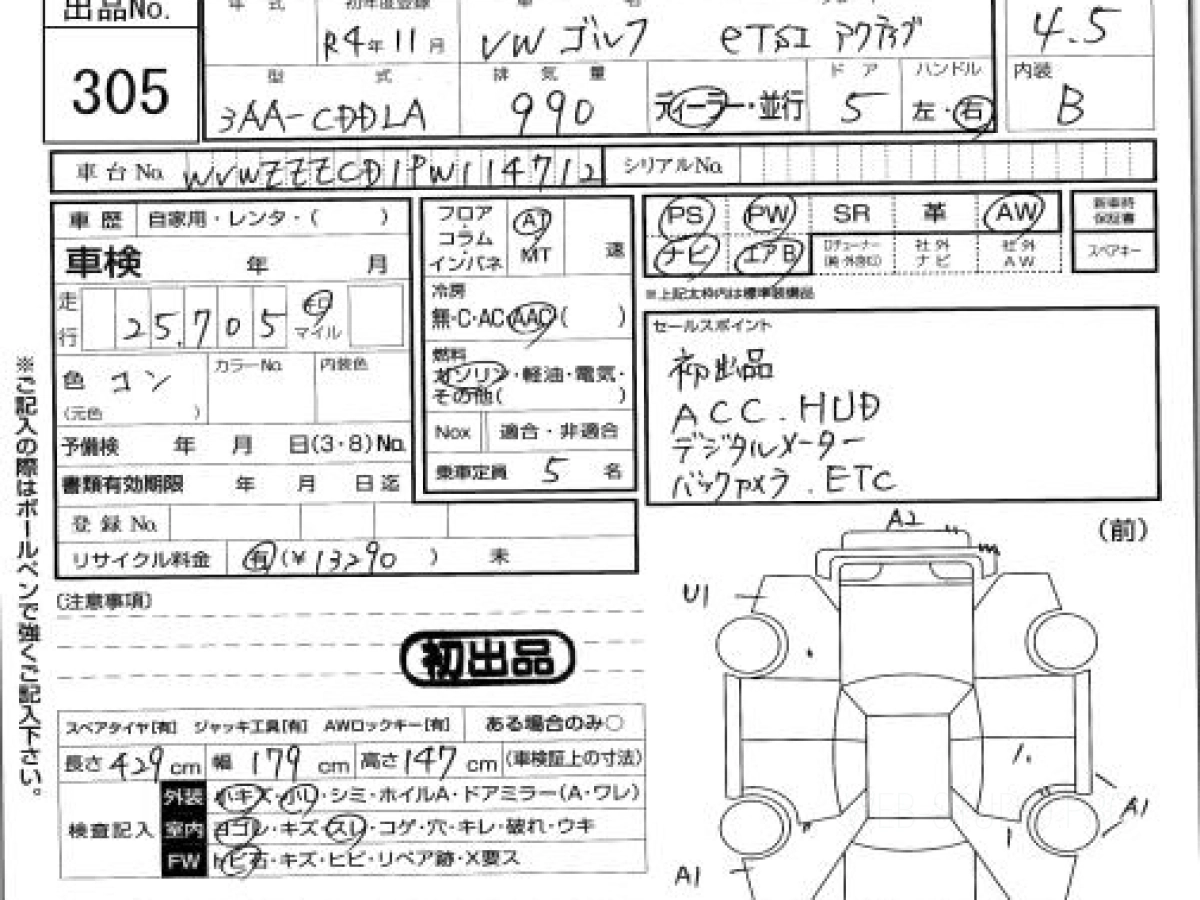 出品No.
305
年 式
初年度登録
R4年11月
車 名
VW ゴルフ eTSI アクティブ
4.5
型 式
3AA-CDDLA
排 気 量
990
ディーラー・並行
ドア
5
ハンドル
左・右
内装
B
車台No. WVWZZZCD1PW114712
シリアルNo.
車歴 自家用・レンタ・( )
車検 年 月
走行 25,705 キロ マイル
色 コン
(元色 )
カラーNo.
内装色
予備検 年 月 日(3・8)No.
書類有効期限 年 月 日迄
登録No.
リサイクル料金 有(¥13290 ) 未
フロア
コラム
インパネ
AT
MT
速
冷房
無・C・AC・AAC( )
燃料
ガソリン・軽油・電気・
その他( )
Nox 適合・非適合
乗車定員 5 名
PS PW SR 革 AW
ナビ エアB
社外ナビ
社外AW
新車時保証書
スペアキー
※上記太枠内は標準装備品
セールスポイント
初出品
ACC.HUD
デジタルメーター
バックカメラ.ETC
※ご記入の際はボールペンで強くご記入下さい。
(注意事項)
初出品
スペアタイヤ[有] ジャッキ工具[有] AWロックキー[有] ある場合のみ○
長さ429cm 幅179cm 高さ147cm (車検証上の寸法)
検査記入
外装 小キズ・小凹・シミ・ホイルA・ドアミラー(A・ワレ)
室内 ヨゴレ・キズ・スレ・コゲ・穴・キレ・破れ・ウキ
FW トビ石・キズ・ヒビ・リペア跡・X要ス
(前)
A2
U1
A1
A1